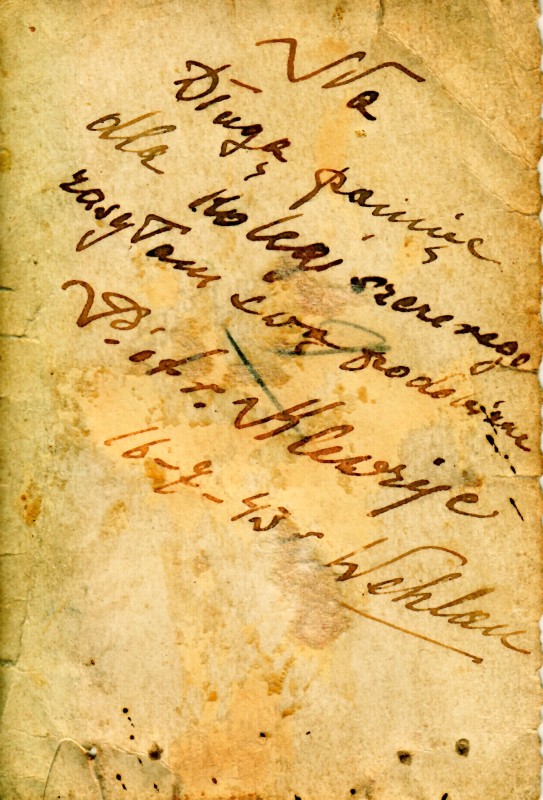 Na
Długą pamięć
dla Kolegi szczerego
zasyłam swą podobiznę
Piotr
16-7-43 r Wehlau